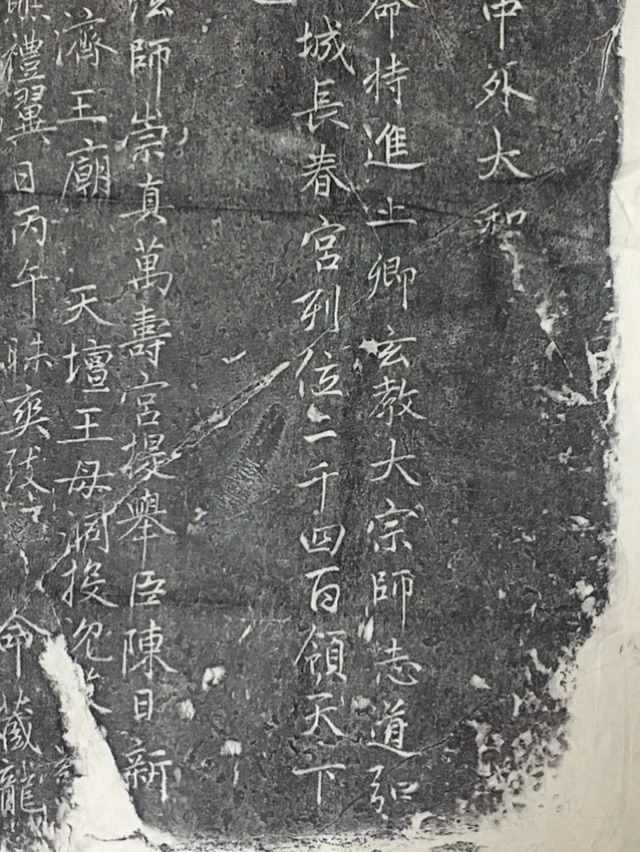 中外太和
命特進上卿玄教大宗師志道弘
城長春宮列位二千四百領天下
法師崇真萬壽宮提舉臣陳日新
濟王廟 天壇王母洞投
禮翼日丙午昧爽 命藏龍